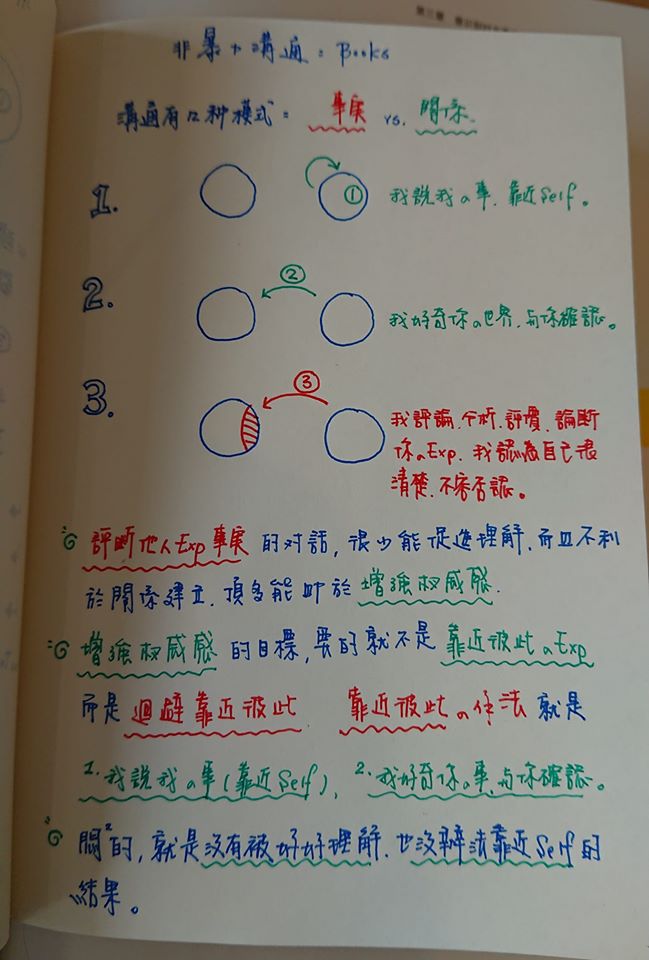 非暴力溝通：Books
溝通有 2 种模式： 事実 vs. 関係.
1. ① 我說我の事. 靠近 Self。
2. ② 我好奇你の世界. 与你確認。
3. ③ 我評論. 分析. 評價. 論斷
你の Exp. 我認為自己很
清楚. 不容否認。
評断他人 Exp 事実 的对話, 很少能促進理解. 而且不利
於関係建立. 頂多能助於 增強权威感.
增強权威感 的目標, 要的就不是 靠近彼此の Exp
而是 迴避靠近彼此 靠近彼此の作法 就是
1. 我說我の事(靠近 Self), 2. 我好奇你の事. 与你確認。
悶²的, 就是沒有被好好理解. 也沒辦法靠近 Self 的
結果。